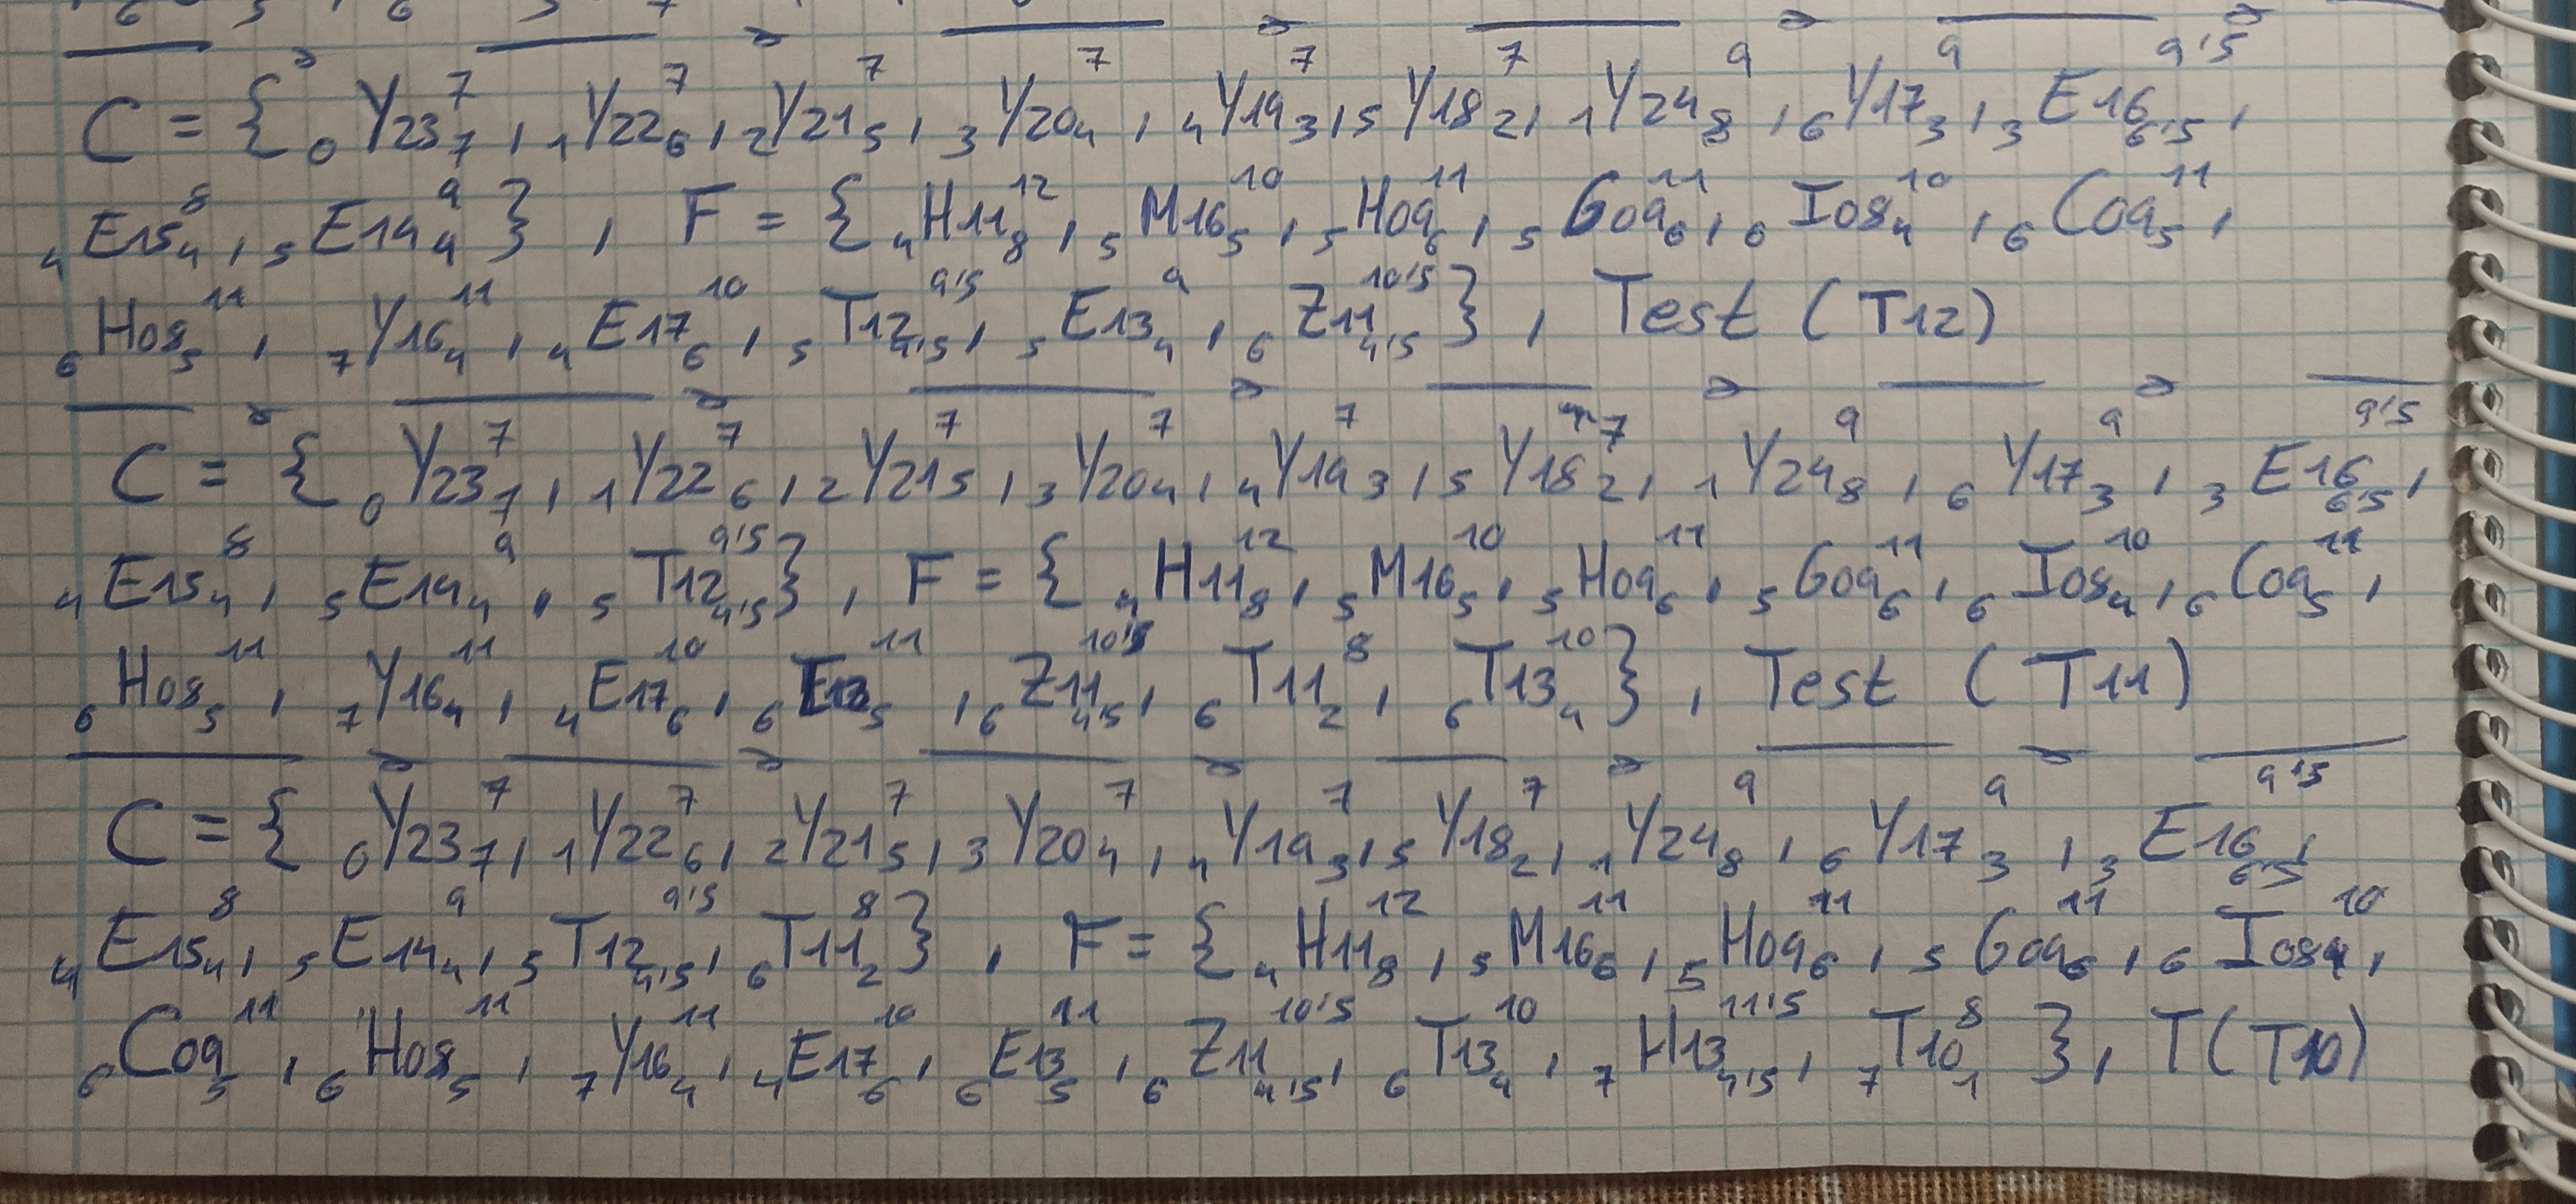 C = { ₀Y23₇⁷, ₁Y22₆⁷, ₂Y21₅⁷, ₃Y20₄⁷, ₄Y19₃⁷, ₅Y18₂⁷, ₁Y24₈⁹, ₆Y17₃⁹, ₃E16₆'₅⁹'⁵,
₄E15₄⁸, ₅E14₄⁹ }, F = { ₄H11₈¹², ₅M16₅¹⁰, ₅H09₆¹¹, ₅G09₆¹¹, ₆I08₄¹⁰, ₆C09₅¹¹,
₆H08₅¹¹, ₇Y16₄¹¹, ₄E17₆¹⁰, ₅T12₄'₅⁹'⁵, ₅E13₄⁹, ₆Z11₄'₅¹⁰'⁵ }, Test (T12)
C = { ₀Y23₇⁷, ₁Y22₆⁷, ₂Y21₅⁷, ₃Y20₄⁷, ₄Y19₃⁷, ₅Y18₂⁷, ₁Y24₈⁹, ₆Y17₃⁹, ₃E16₆'₅⁹'⁵,
₄E15₄⁸, ₅E14₄⁹, ₅T12₄'₅⁹'⁵ }, F = { ₄H11₈¹², ₅M16₅¹⁰, ₅H09₆¹¹, ₅G09₆¹¹, ₆I08₄¹⁰, ₆C09₅¹¹,
₆H08₅¹¹, ₇Y16₄¹¹, ₄E17₆¹⁰, ₆E13₅¹¹, ₆Z11₄'₅¹⁰'⁵, ₆T11₂⁸, ₆T13₄¹⁰ }, Test (T11)
C = { ₀Y23₇⁷, ₁Y22₆⁷, ₂Y21₅⁷, ₃Y20₄⁷, ₄Y19₃⁷, ₅Y18₂⁷, ₁Y24₈⁹, ₆Y17₃⁹, ₃E16₆'₅⁹'⁵,
₄E15₄⁸, ₅E14₄⁹, ₅T12₄'₅⁹'⁵, ₆T11₂⁸ }, F = { ₄H11₈¹², ₅M16₆¹¹, ₅H09₆¹¹, ₅G09₆¹¹, ₆I08₄¹⁰,
₆C09₅¹¹, ₆H08₅¹¹, ₇Y16₄¹¹, ₄E17₆¹⁰, ₆E13₅¹¹, ₆Z11₄'₅¹⁰'⁵, ₆T13₄¹⁰, ₇H13₄'₅¹¹'⁵, ₇T10₁⁸ }, T(T10)